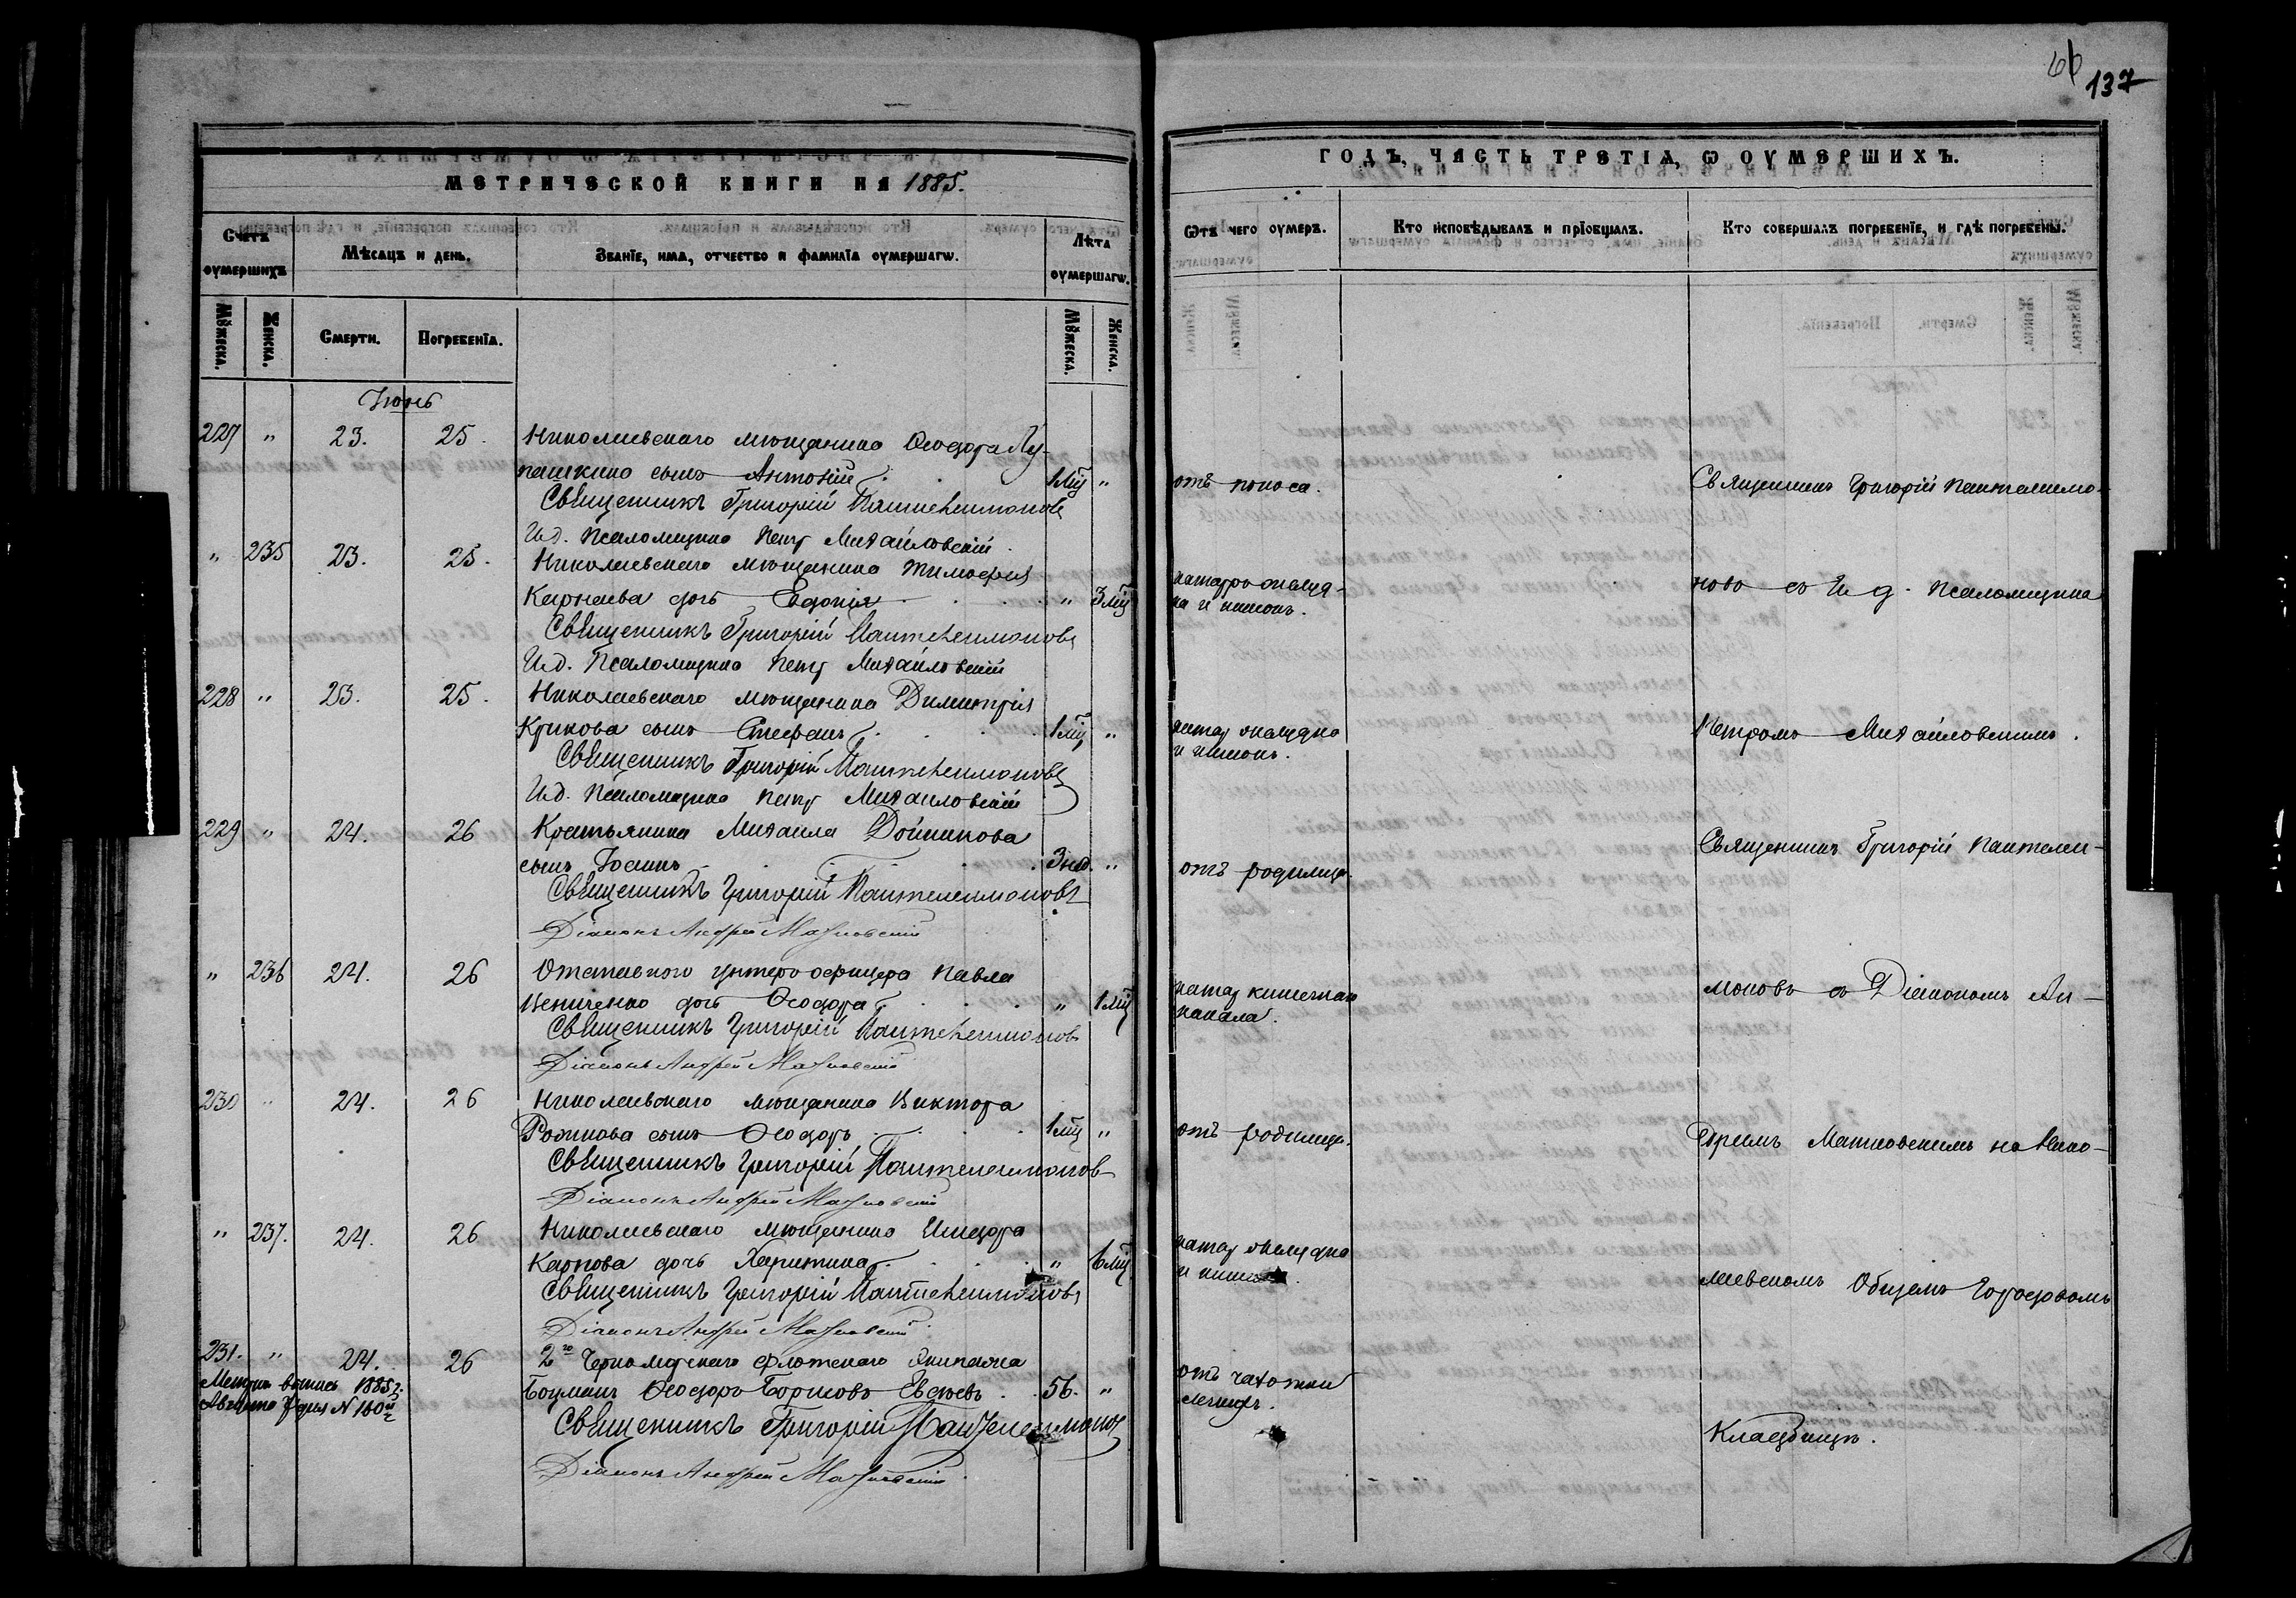 МЕТРИЧЕСКОЙ КНИГИ НА 1885.
Счетъ оумершихъ
Мѣсяцъ и день.
Званїе, имѧ, отчество и фамилїѧ оумершагѡ.
Лѣта оумершагѡ.
Мꙋжеска.
Женска.
Смерти.
Погребенїѧ.
Мꙋжеска.
Женска.
Іюнь
227 " 23. 25. Николаевскаго мѣщанина Ѳеодора Лу-
пашкина сынъ Антоній 1 мц "
Священникъ Григорій Пантелеимоновъ
И.д. Псаломщика Петръ Михайловскій.
" 235 23. 25. Николаевскаго мѣщанина Тимофея
Карнаева дочь Евдокія " 3 мц
Священникъ Григорій Пантелеимоновъ
И.д. Псаломщика Петръ Михайловскій
228 " 23. 25. Николаевскаго мѣщанина Димитрія
Крикова сынъ Стефанъ 1 мц "
Священникъ Григорій Пантелеимоновъ
И.д. Псаломщика Петръ Михайловскій
229 " 24. 26 Крестьянина Михаила Дойникова
сынъ Іоаннъ 3 нед. "
Священникъ Григорій Пантелеимоновъ
Діаконъ Андрей Матковскій
" 236 24. 26 Отставного унтеръ офицера Павла
дочь Ѳеодора " 1 мц
Священникъ Григорій Пантелеимоновъ
Діаконъ Андрей Матковскій
230 " 24. 26 Николаевскаго мѣщанина Виктора
Рожнова сынъ Ѳеодоръ 1 мц "
Священникъ Григорій Пантелеимоновъ
Діаконъ Андрей Матковскій
" 237. 24. 26 Николаевскаго мѣщанина Исидора
Карпова дочь Харитина " 6 мц
Священникъ Григорій Пантелеимоновъ
Діаконъ Андрей Матковскій
231. " 24. 26 2го Черноморскаго флотскаго Экипажа
Боцманъ Ѳеодоръ Борисовъ 56. "
Метрич. выпись 1885 г.
Августа 7 дня N 160
Священникъ Григорій Пантелеимоновъ
Діаконъ Андрей Матковскій
66
137
ГОДЪ, ЧАСТЬ ТРЕТІѦ, Ѡ ОУМЕРШИХЪ.
Ѿтъ чего оумеръ.
Кто исповѣдывалъ и прїобщалъ.
Кто совершалъ погребенїе, и гдѣ погребены.
отъ поноса.
Священникъ Григорій Пантелеимо-
катарро желуд-
ка и кишокъ.
новъ съ И д. Псаломщика
катар желудка
и кишокъ.
Петромъ Михайловскимъ.
отъ родимца.
Священникъ Григорій Пантелеи-
катар кишечнаго
канала.
моновъ съ Діакономъ Ан-
отъ родимца.
дреемъ Матковскимъ на Нико-
катар желудка
и
лаевскомъ Общемъ Городскомъ
отъ чахотки
легкихъ.
Кладбищѣ.